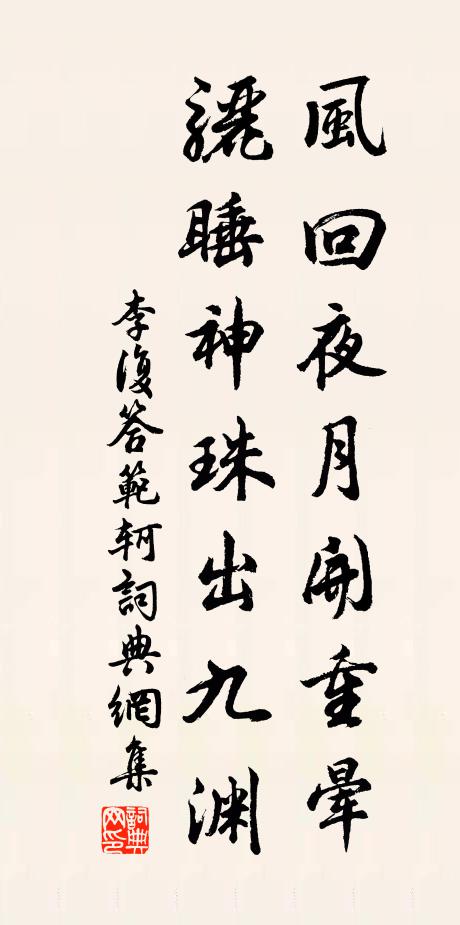 風回夜月開重暈
驪睡神珠出九淵
李復答範軻詞典網集
詞典網印